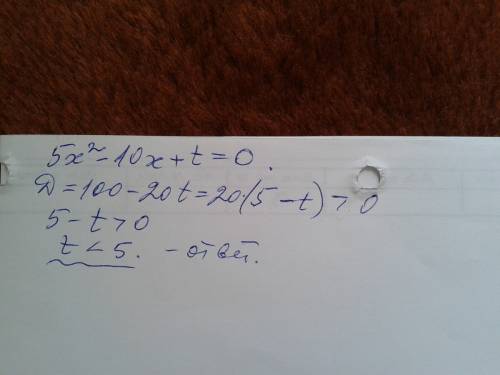 5x² - 10x + t = 0.
D = 100 - 20t = 20·(5 - t) > 0
5 - t > 0
t < 5. - ответ.